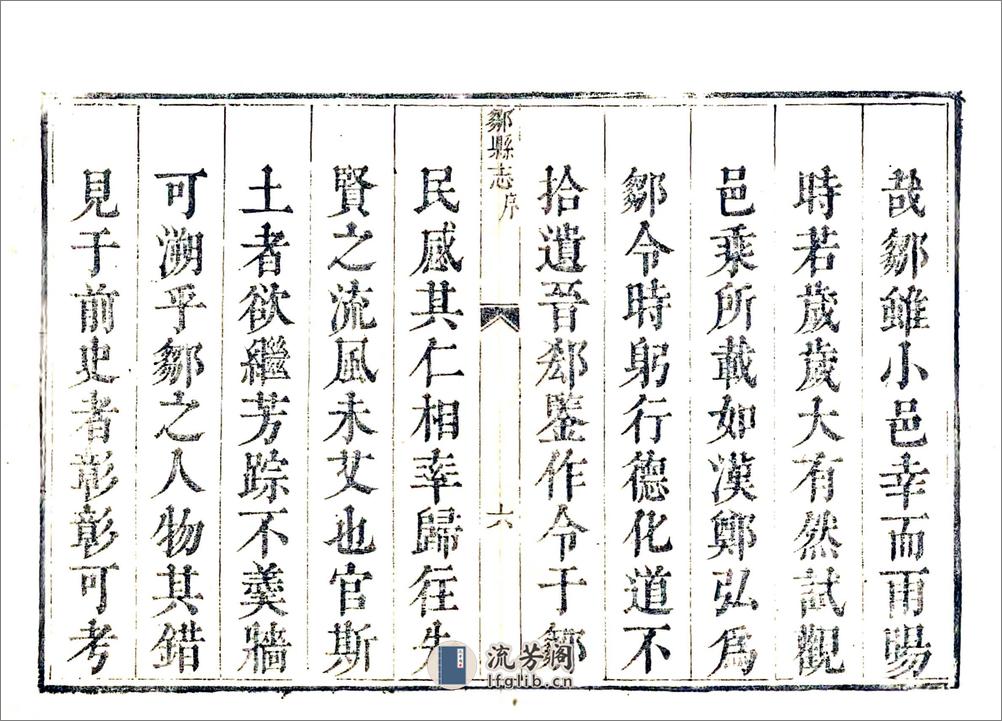 哉鄒雖小邑幸而雨暘
時若歲歲大有然試觀
邑乘所載如漢鄭弘爲
鄒令時躬行德化道不
拾遺晉郄鑒作令于鄒
鄒縣志序
六
民感其仁相率歸往先
賢之流風未艾也官斯
土者欲繼芳踪不羹牆
可溯乎鄒之人物其錯
見于前史者彰彰可考
流芳閣
lfglib.cn